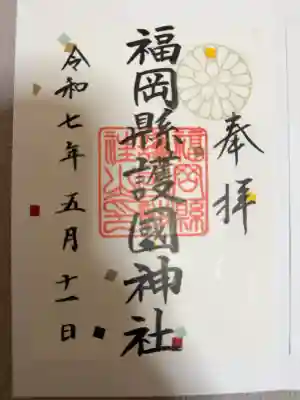 奉拝
福岡縣護國神社
令和七年五月十一日